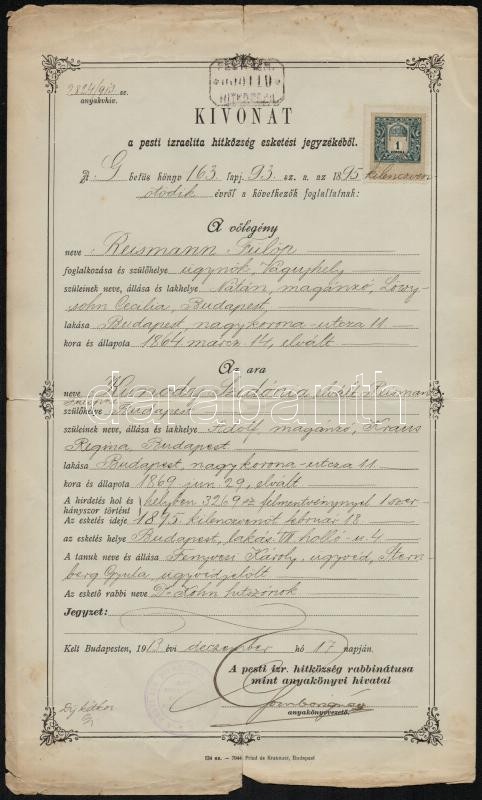 9824/913 sz.
anyakvkiv.
PESTI IZR.
HITKÖZSÉG
KIVONAT
a pesti izraelita hitközség esketési jegyzékéből.
1
A G betüs könyv 163. lapj. 93. sz. a. az 1895 kilenczven
ötödik évről a következők foglaltatnak:
A vőlegény
neve Reismann Fülöp
foglalkozása és szülőhelye ügynök, Vágujhely
szüleinek neve, állása és lakhelye Nátán, magánzó, Löwy-
sohn Cecilia, Budapest,
lakása Budapest, nagykorona-utcza 11.
kora és állapota 1864 márcz. 14, elvált
Az ara
neve Sidónia elvált Reisman
szülőhelye Budapest
szüleinek neve, állása és lakhelye Adolf, magánzó, Kraus
Regina Budapest
lakása Budapest, nagykorona-utcza 11.
kora és állapota 1869 jun. 29, elvált
A hirdetés hol és hányszor történt helyben 3269 sz felmentvénynyel 1 szer
Az esketés ideje 1895 kilenczvenöt február 18
az esketés helye Budapest, lakás VII. holló-u. 4.
A tanuk neve és állása Fenyvesi Károly, ügyvéd, Stern-
berg Gyula, ügyvédjelölt
Az eskető rabbi neve Dr Kohn
Jegyzet:
Kelt Budapesten, 1913 évi deczember hó 17 napján.
A pesti izr. hitközség rabbinátusa
mint anyakönyvi hivatal
anyakönyvvezető.
darabanth
124 sz. — 7044 Fried és Krakauer, Budapest